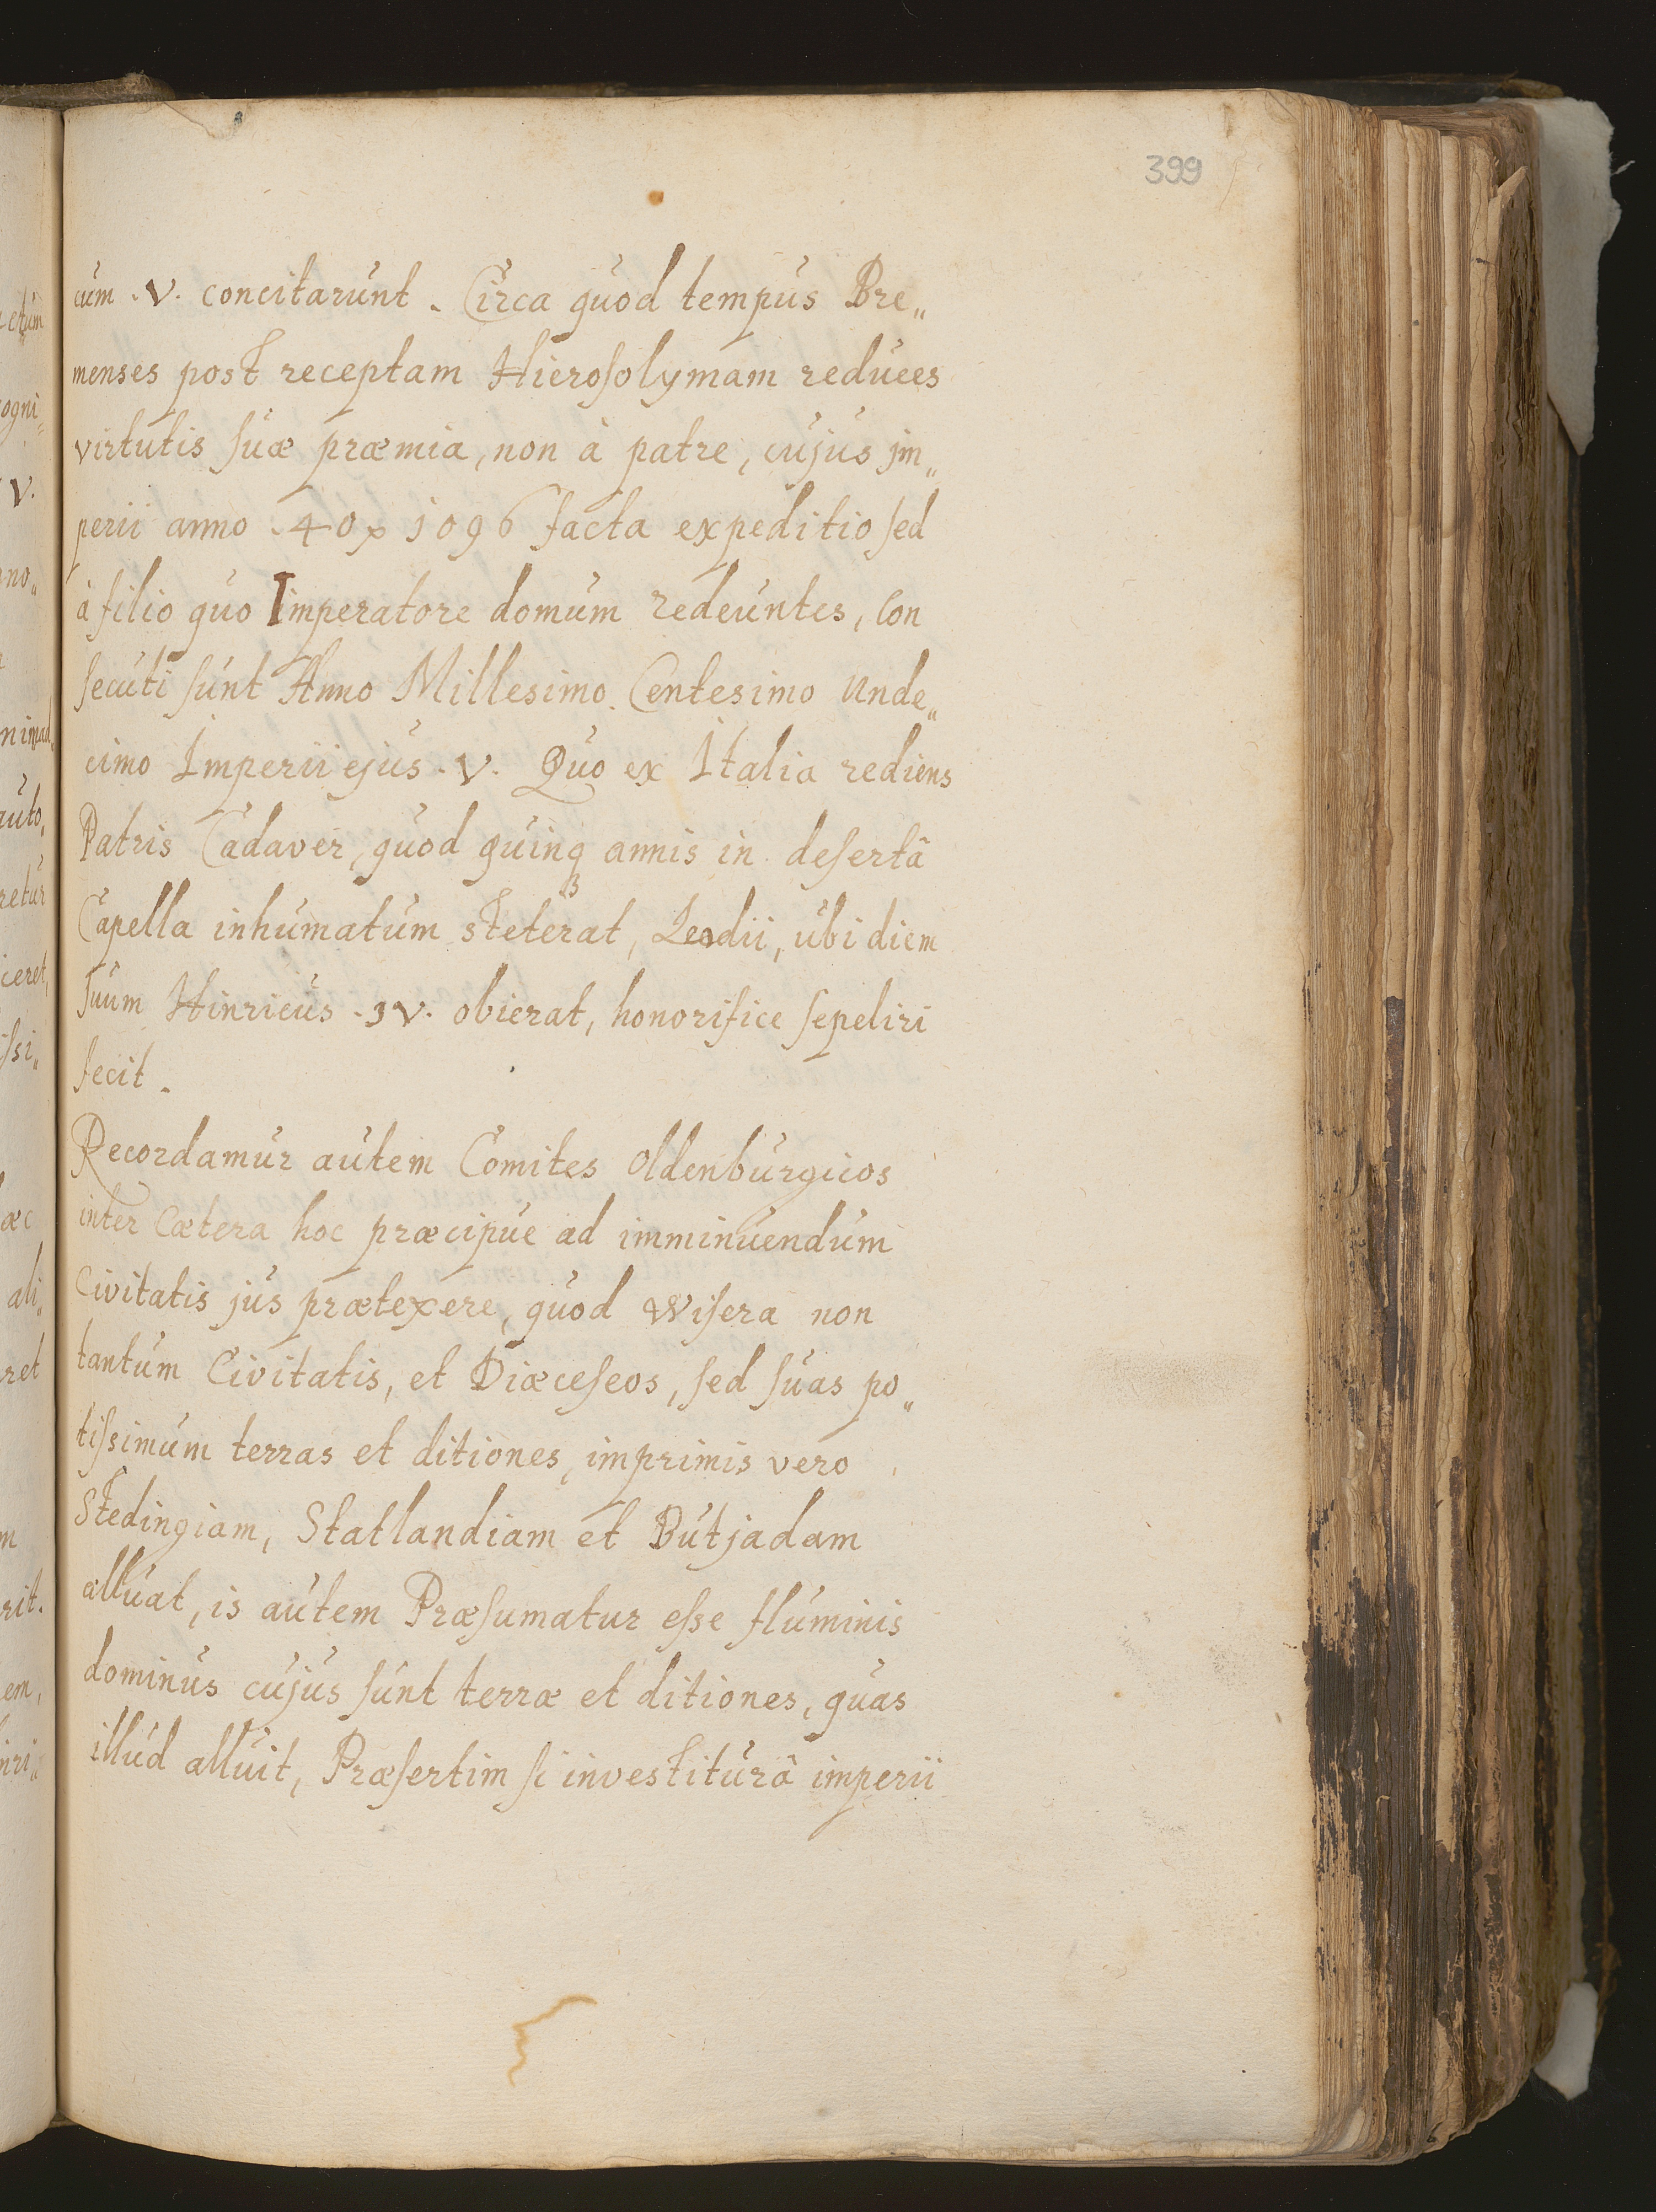 399
cum . V. concitarunt . Circa quod tempus Bre„
menses post receptam Hieroſolymam reduces
virtutis ſuæ præmia, non à patre, cujus jm„
perii anno . 40 1096 facta expeditio ſed
à filio quo Imperatore domum redeuntes, Con
ſecuti ſunt Anno Millesimo Centesimo unde„
cimo Imperii ejus . V. Quo ex Italia rediens
Patris Cadaver, quod quinq3 annis in deſertâ
Capella inhumatum steterat, Leodii, ubi diem
ſuum Hinricus . JV. obierat, honorifice ſepeliri
fecit .
Recordamur autem Comites oldenburgicos
inter Cætera hoc præcipue ad imminuendum
Civitatis jus prætexere, quod Wiſera non
tantum Civitatis, et Diæceſeos, ſed ſuas po„
tiſsimum terras et ditiones, imprimis vero
Stedingiam, Statlandiam et Butjadam
alluat, is autem Præſumatur eſse fluminis
dominus cujus ſunt terræ et ditiones, quas
illud alluit, Præſertim ſi investiturâ imperii